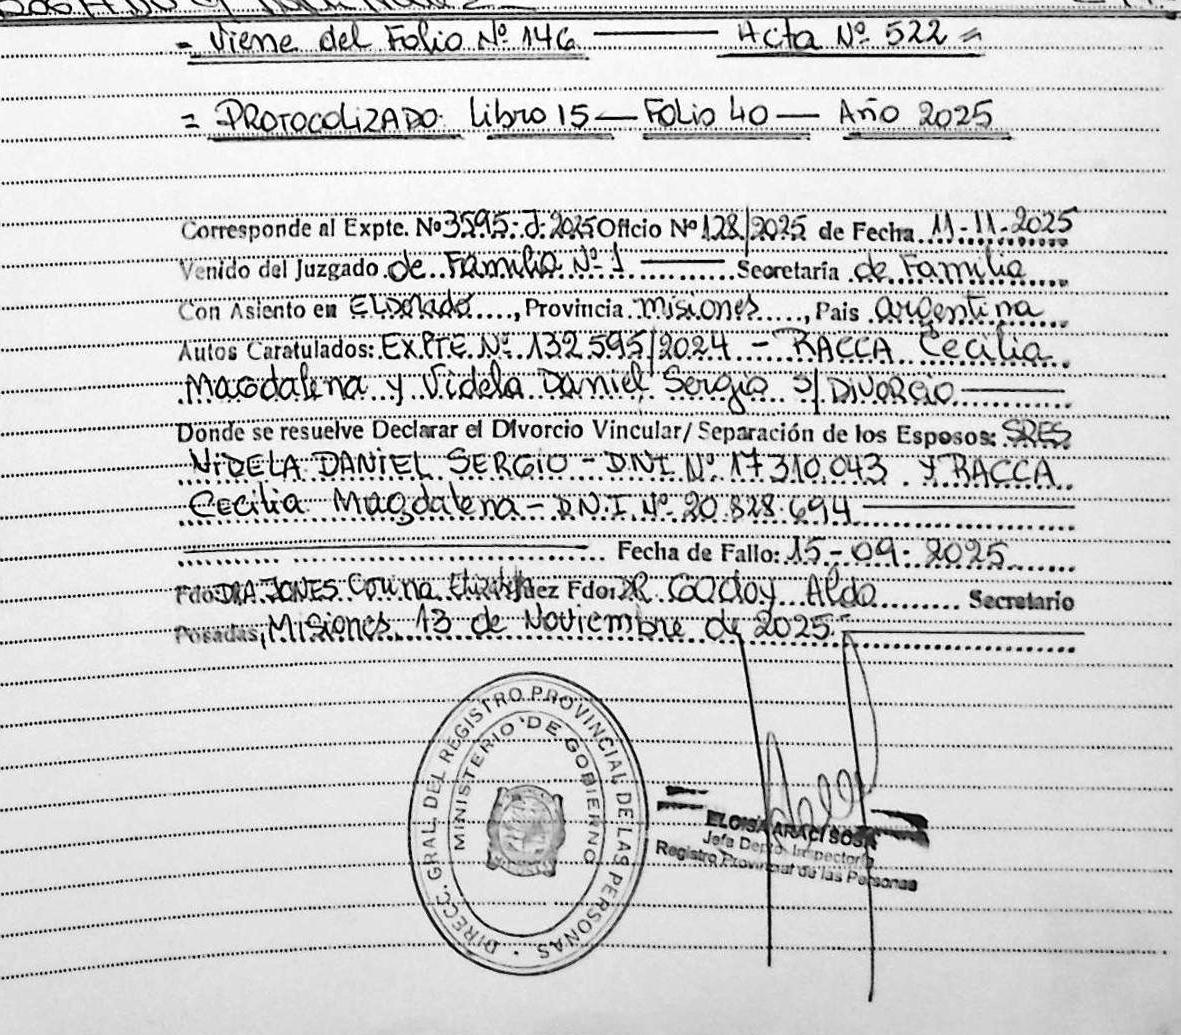 = Viene del Folio Nº 146 ——— Acta Nº 522 =
= PROTOCOLIZADO: Libro 15 — Folio 40 — Año 2025
Corresponde al Expte. Nº 3595-J-2025 Oficio Nº 128/2025 de Fecha 11-11-2025
Venido del Juzgado de Familia Nº 1 ——— Secretaría de Familia
Con Asiento en ELDorado...., Provincia Misiones....., Pais Argentina
Autos Caratulados: EXPTE. Nº 132.595/2024 - RACCA Cecilia
Magdalena y Videla Daniel Sergio S/ DIVORCIO
Donde se resuelve Declarar el Divorcio Vincular/ Separación de los Esposos: SRES
VIDELA DANIEL SERGIO - DNI Nº 17.310.043. Y RACCA
Cecilia Magdalena - D.N.I. Nº 20.828.694
Fecha de Fallo: 15-09-2025
Fdo: DRA. JONES Juez Fdo: DR. Godoy Aldo Secretario
Posadas, Misiones 13 de Noviembre de 2025.-
DIRECC. GRAL. DEL REGISTRO PROVINCIAL DE LAS PERSONAS
MINISTERIO DE GOBIERNO
ELOISA ARACI SOSA
Jefa Depto. Inspectoría
Registro Provincial de las Personas